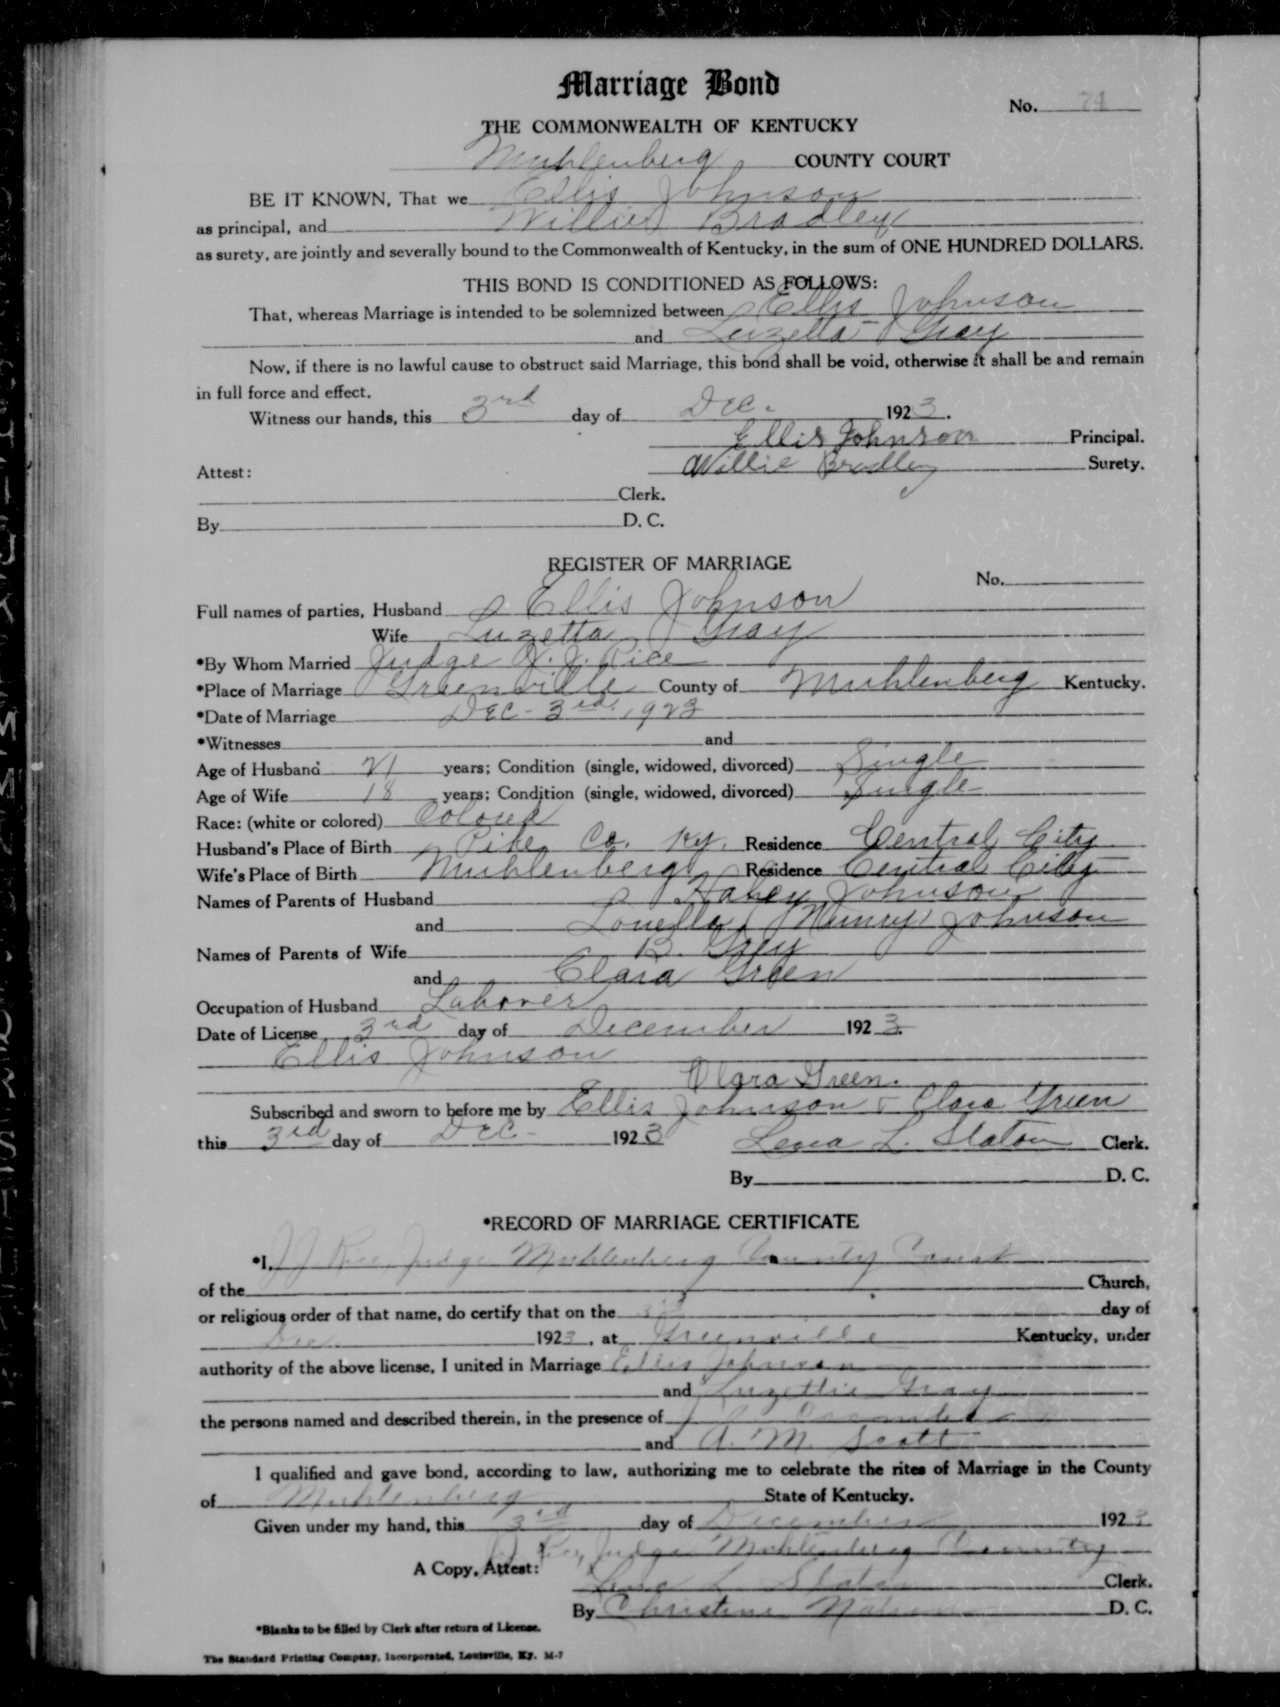 Marriage Bond
No. 71
THE COMMONWEALTH OF KENTUCKY
Muhlenberg COUNTY COURT
BE IT KNOWN, That we Ellis Johnson
as principal, and Willie Bradley
as surety, are jointly and severally bound to the Commonwealth of Kentucky, in the sum of ONE HUNDRED DOLLARS.
THIS BOND IS CONDITIONED AS FOLLOWS:
That, whereas Marriage is intended to be solemnized between Ellis Johnson
and Luzetta Gray
Now, if there is no lawful cause to obstruct said Marriage, this bond shall be void, otherwise it shall be and remain
in full force and effect.
Witness our hands, this 3rd day of Dec. 1923.
Ellis Johnson Principal.
Willie Bradley Surety.
Attest:
Clerk.
By D. C.
REGISTER OF MARRIAGE
No.
Full names of parties, Husband Ellis Johnson
Wife Luzetta Gray
*By Whom Married Judge J. J. Rice
*Place of Marriage Greenville County of Muhlenberg Kentucky.
*Date of Marriage Dec - 3rd, 1923
*Witnesses and
Age of Husband 21 years; Condition (single, widowed, divorced) Single
Age of Wife 18 years; Condition (single, widowed, divorced) Single
Race: (white or colored) Colored
Husband's Place of Birth Pike Co. Ky. Residence Central City
Wife's Place of Birth Muhlenberg Residence Central City
Names of Parents of Husband Johnson
and Louella Johnson
Names of Parents of Wife B. Gray
and Clara Green
Occupation of Husband Laborer
Date of License 3rd day of December 1923.
Ellis Johnson
Clara Green.
Subscribed and sworn to before me by Ellis Johnson & Clara Green
this 3rd day of Dec - 1923 Lena L. Slaton Clerk.
By D. C.
*RECORD OF MARRIAGE CERTIFICATE
*I, J J Rice, Judge Muhlenberg County Court
of the Church,
or religious order of that name, do certify that on the 3rd day of
Dec. 1923, at Greenville Kentucky, under
authority of the above license, I united in Marriage Ellis Johnson
and Luzettie Gray
the persons named and described therein, in the presence of
and A. M. Scott
I qualified and gave bond, according to law, authorizing me to celebrate the rites of Marriage in the County
of Muhlenberg State of Kentucky.
Given under my hand, this 3rd day of December 1923
J J Rice, Judge Muhlenberg County
A Copy, Attest:
Lena L Slaton Clerk.
By Christine D. C.
*Blanks to be filled by Clerk after return of License.
The Standard Printing Company, Incorporated, Louisville, Ky. M-7